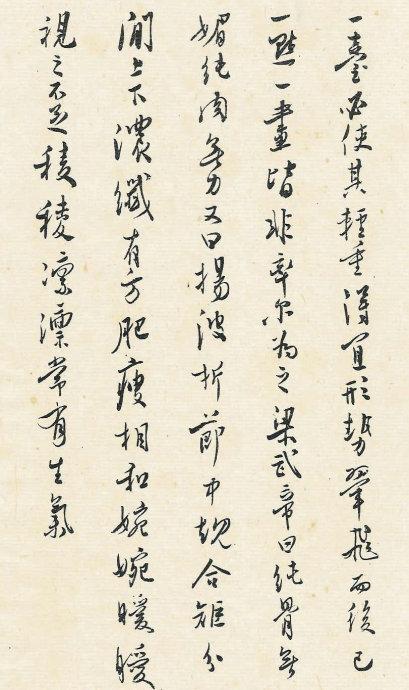 一畫必使其輕重得宜形勢翬飛而後已
一點一畫皆非率尔為之梁武帝曰純骨無
媚純肉無力又曰揚波折節中規合矩分
間上下濃纖有方肥瘦相和婉婉曖曖
視之不足稜稜凛凛常有生氣